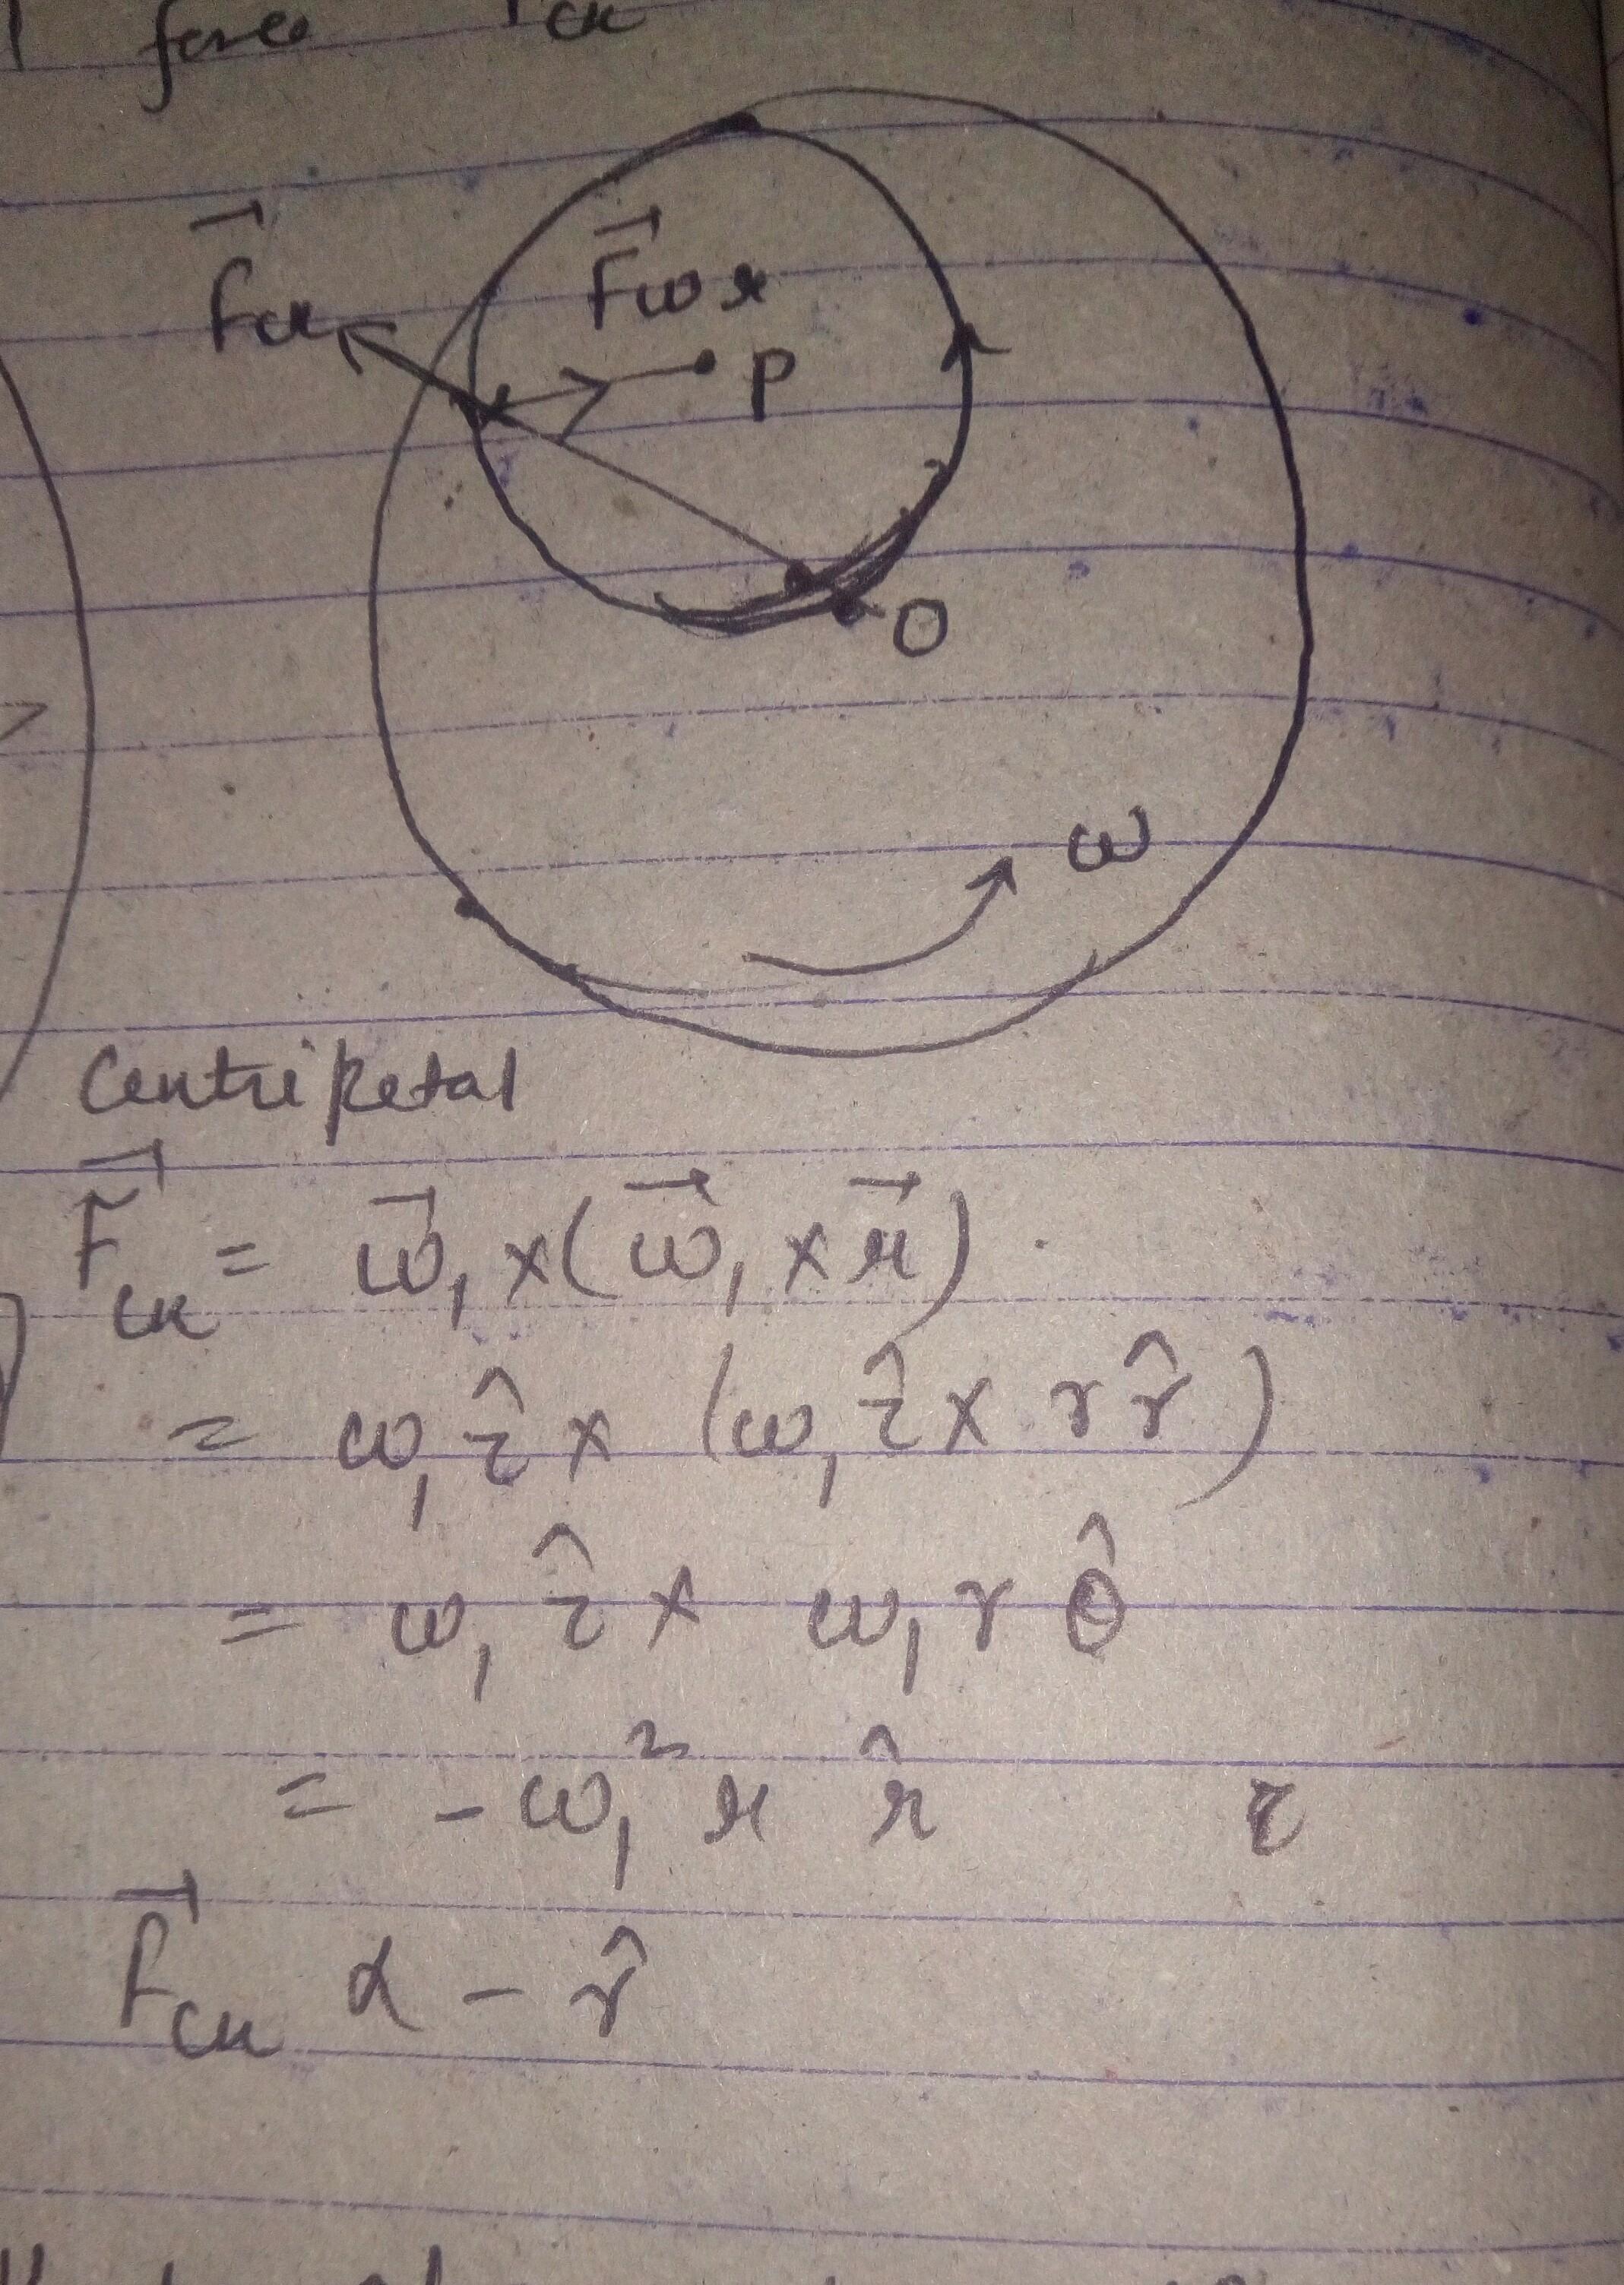 force F_cr
F⃗_cr F⃗_wor
P
O
ω
Centripetal
F⃗_cr = ω⃗₁ × (ω⃗₁ × r⃗).
= ω₁ẑ × (ω₁ẑ × r r̂)
= ω₁ẑ × ω₁ r θ̂
= -ω₁² r r̂ z
F⃗_cr α - r̂